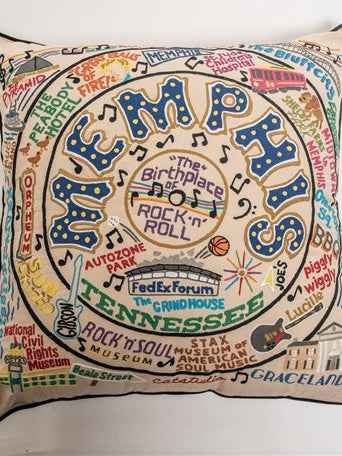 MEMPHIS
GREAT BALLS
OF FIRE!
THE
PEABODY
HOTEL
PYRAMID
Children's
Hospital
The Bluff City
MEMPHIS
"The
Birthplace
of
ROCK 'n'
ROLL
ORPHEUM
AUTOZONE
PARK
FedExForum
The GRINDHOUSE
TENNESSEE
GIBSON
JOE'S
BBQ
Piggly
Wiggly
Lucille
National
Civil
Rights
Museum
ROCK 'n' SOUL
MUSEUM
STAX
MUSEUM OF
AMERICAN
SOUL MUSIC
Beale Street
GRACELAND